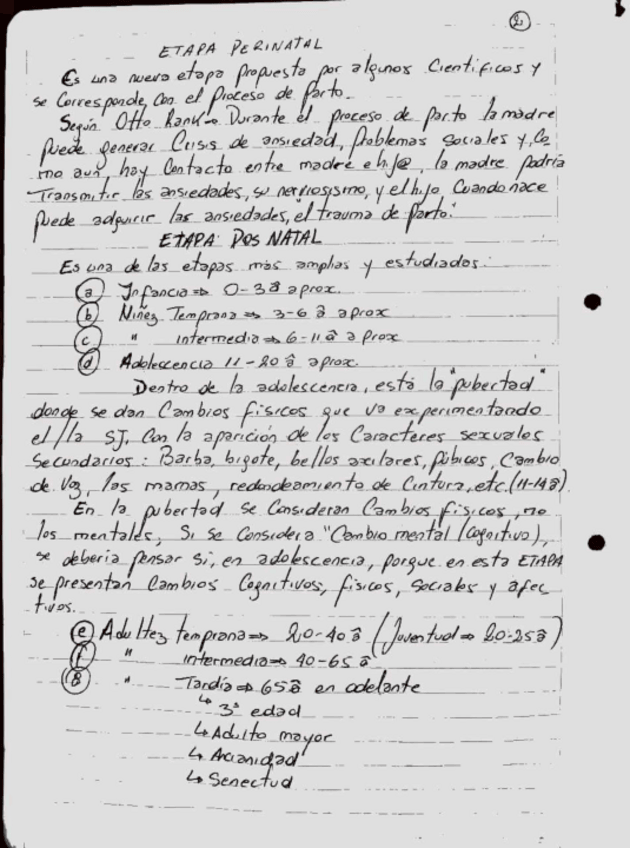 2
ETAPA PERINATAL
Es una nueva etapa propuesta por algunos Científicos y
se Corresponde, con el proceso de parto.
Según Otto Rank→ Durante el proceso de parto la madre
puede generar Crisis de ansiedad, problemas sociales y, Co
mo aun, hay Contacto entre madre e hj@, la madre podría
Transmitir las ansiedades, su nerviosismo, y el hijo Cuando nace
puede adquirir las ansiedades, "el trauma de parto."
ETAPA POSNATAL
Es una de las etapas más amplias y estudiadas:
a Infancia ⇒ 0-3â aprox.
b Niñez Temprana ⇒ 3-6 â aprox
c " intermedia ⇒ 6-11 â aprox
d Adolescencia 11-20 â aprox.
Dentro de la adolescencia, está la "pubertad"
donde se dan Cambios físicos que va experimentando
el/la SJ, Con la aparición de los Caracteres sexuales
Secundarios: Barba, bigote, bellos axilares, púbicos, Cambio
de Voz, las mamas, redondeamiento de Cintura, etc. (11-14â).
En la pubertad se Consideran Cambios físicos, no
los mentales, Si se Considera "Cambio mental / Cognitivo),
se debería pensar si, en adolescencia, porque en esta ETAPA
se presentan Cambios Cognitivos, físicos, sociales y afec
tivos.
e Adultez temprana ⇒ 20-40 â (Juventud ⇒ 20-25â)
f " intermedia ⇒ 40-65 â
g " Tardía ⇒ 65â en adelante
↳ 3ª edad
↳ Adulto mayor
↳ Ancianidad
↳ Senectud